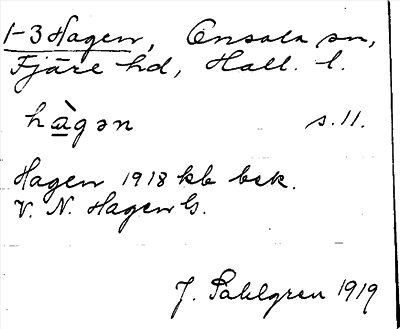 1-3 Hagen, Onsala sn,
Fjäre hd, Hall. l.
hàgən s. 11.
Hagen 1918 kb bsk.
V. N. Hagen G.
J. Sahlgren 1919